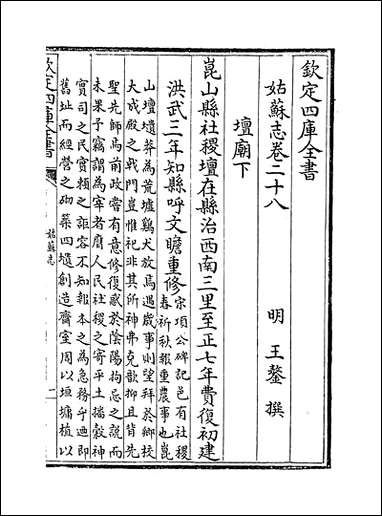 欽定四庫全書
姑蘇志卷二十八
明 王鏊 撰
壇廟下
崑山縣社稷壇在縣治西南三里至正七年費復初建
洪武三年知縣呼文瞻重修
宋項公碑記邑有社稷
春祈秋報重農事也崑
山壇壝莽為荒墟鷄犬放焉遇歲事則望拜於鄉校
大成殿之㦸門豈惟祀非其所神弗克歆抑且背先
聖先師焉前政常有意修復惑於陰陽拘忌之說而
未果予竊謂為宰者膺人民社稷之寄平土播穀神
實司之民實賴之詎容不知報本之為急務乎廼即
舊址而經營之砌築四壝創造齋室周以垣墉植以
欽定四庫全書
姑蘇志
一